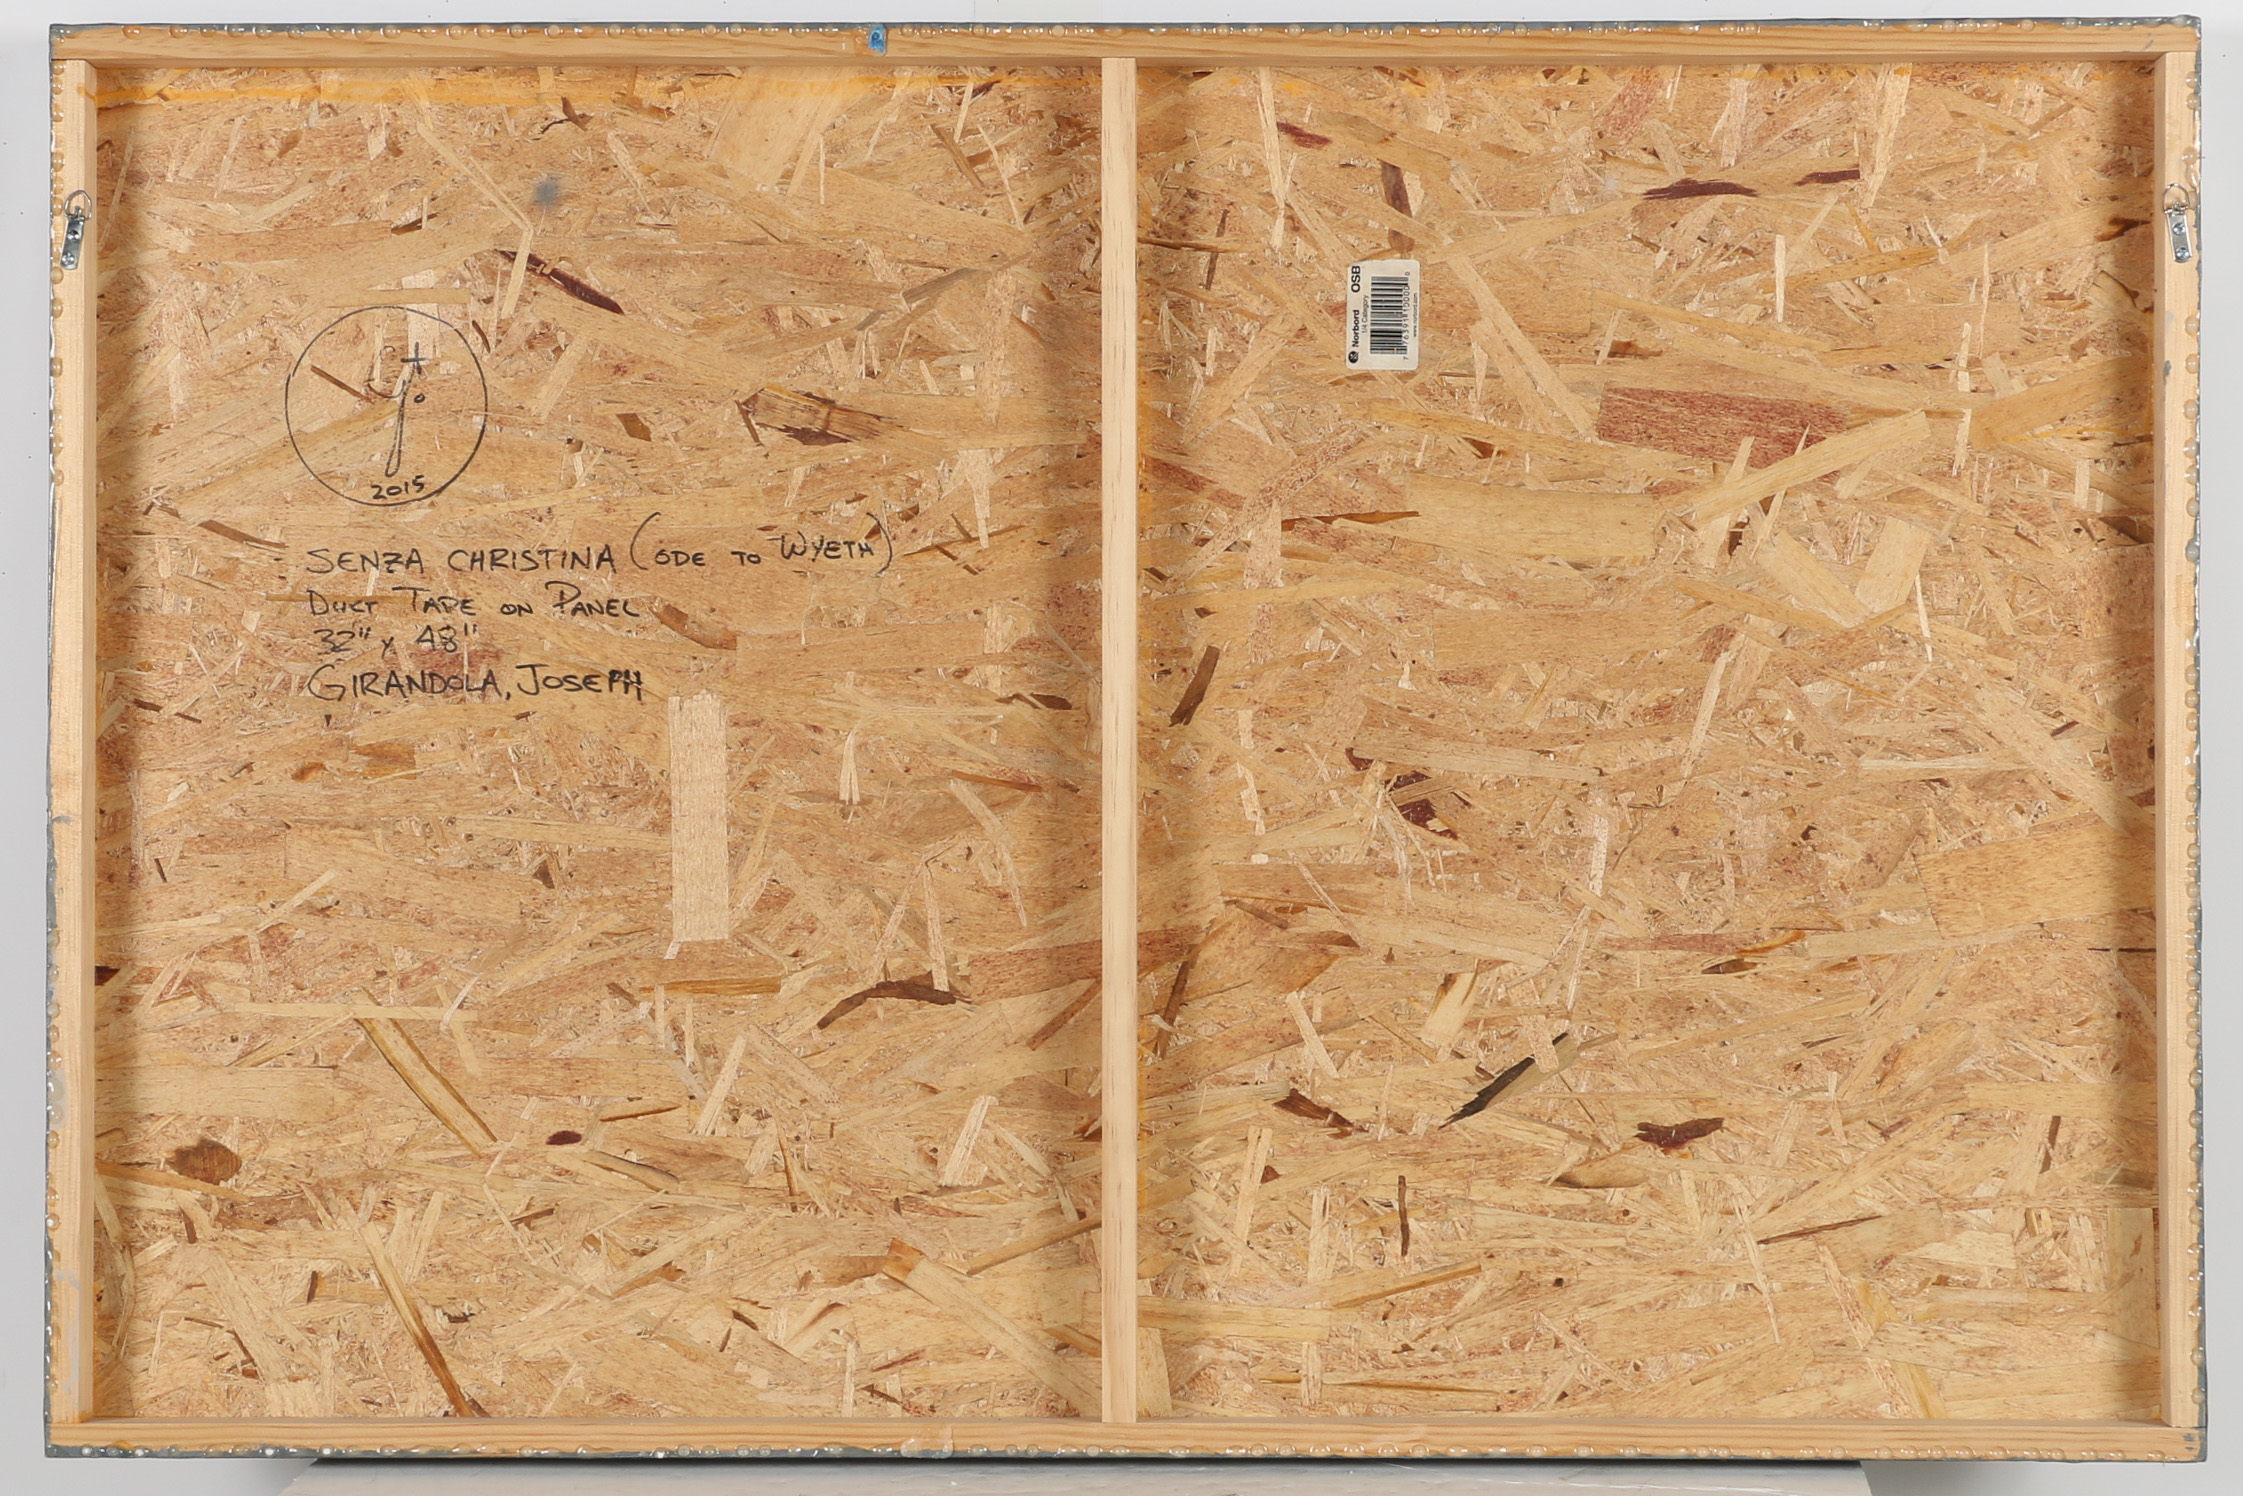 2015
SENZA CHRISTINA (ODE TO WYETH)
DUCT TAPE ON PANEL
32" x 48"
GIRANDOLA, JOSEPH
Norbord OSB
1/4 Category
www.norbord.com